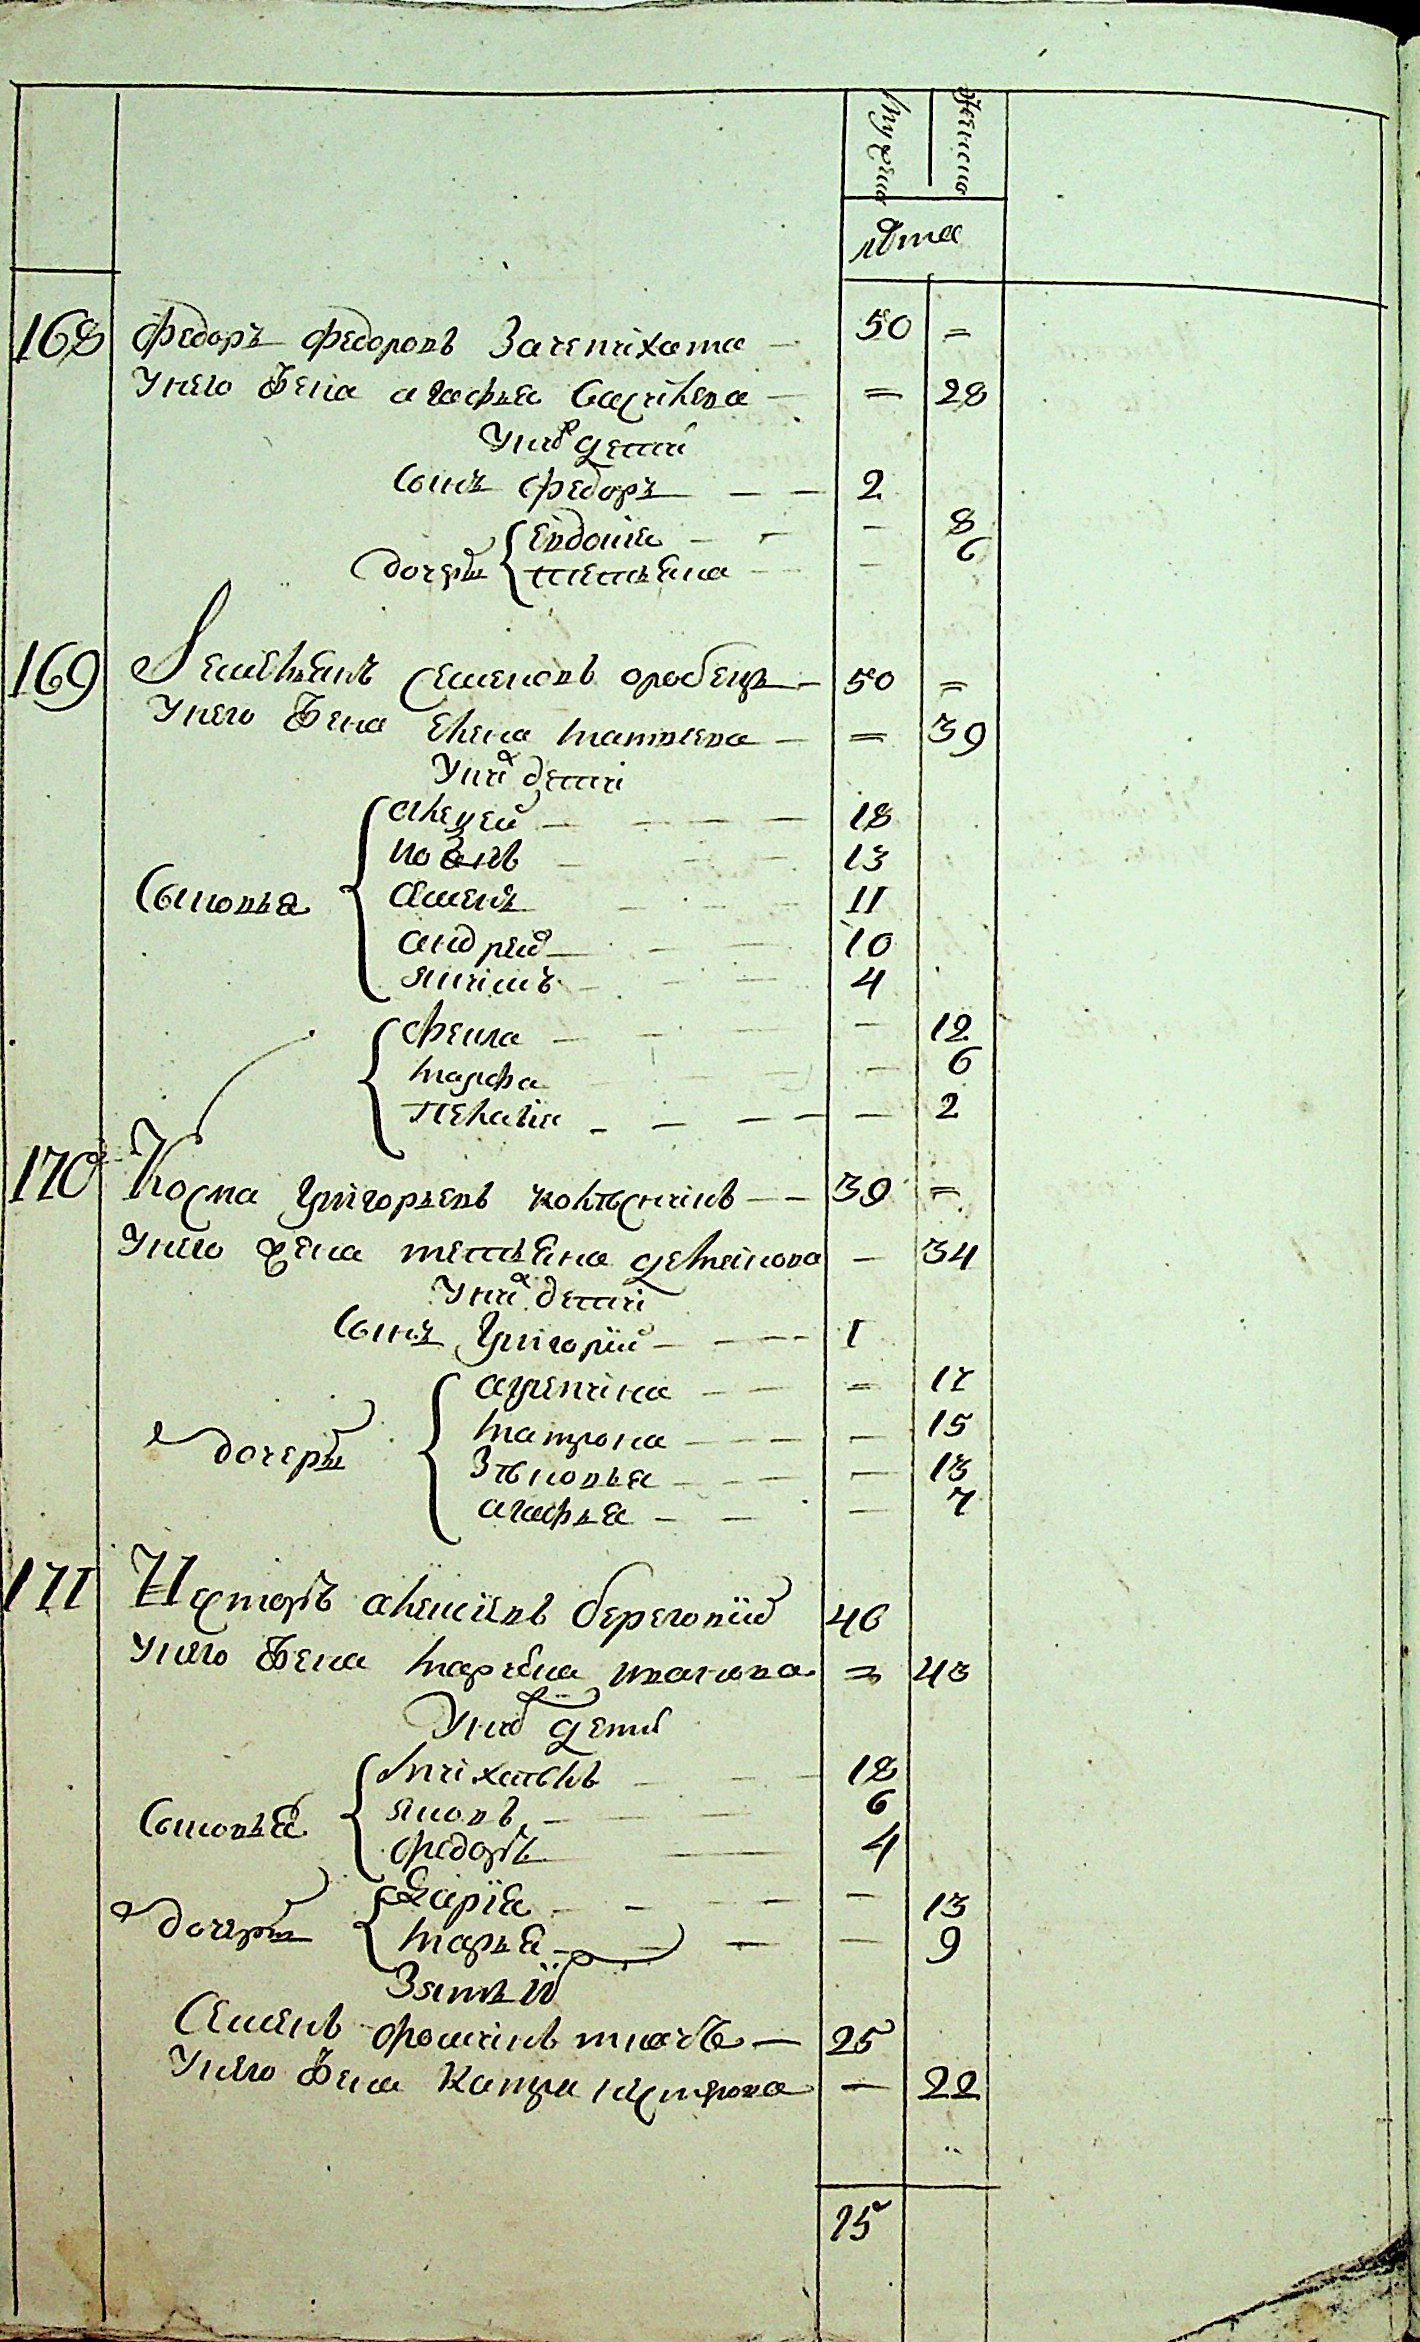 мужеска женска
лѣта
168 Федоръ Федоровъ Зачепихата — 50 =
У него жена агафья Васильева — = 28
У них дети
Сынъ Федоръ — — 2
Дочеры { Евдокия — - — 8
тетьяна — — 6
169 Емельянъ Семеновъ оробецъ — 50 =
У него жена Елена матвеева — = 39
У них дети
Сыновья { Алексей — — — — 18
иован — — — 13
Семенъ — — — 11
андрей — — — 10
якимъ — — — 4
{ фекла — — — — 12
марфа — — — — 6
пелагия — — — — — 2
170 Косма Григорьевъ — — 39 =
У него жена тетьяна демянова — — 34
У них дети
Сынъ Григорий — — — 1
Дочеры { агрепина — — = 17
матрона — — — — 15
Зѣновья — — — — 13
агафья — — — 7
171 Несторъ алексиевъ береговий 46
У него жена марьяна иванова = 43
У них дети
Сыновья { михайлъ — — 18
яковъ — — — 6
федоръ — — 4
Дочеры { дария — — — — 13
марья — — — — 9
Зятьй
Семенъ фоминъ ткачъ — 25
У него жена Катря нестерова — 22
15